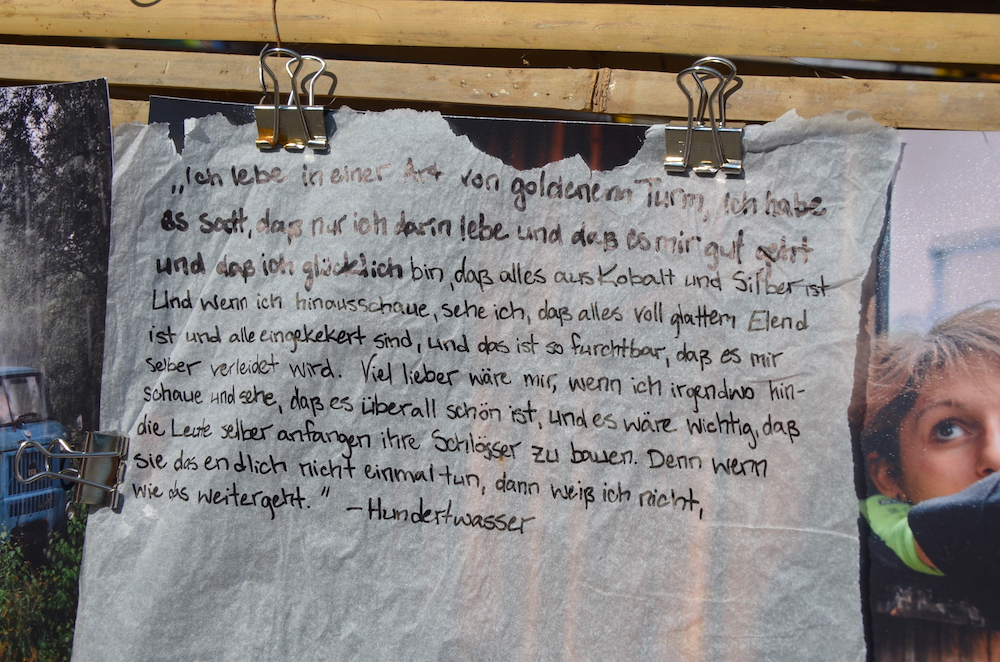 „Ich lebe in einer Art von goldenem Turm, Ich habe
es satt, daß nur ich darin lebe und daß es mir gut geht
und daß ich glücklich bin, daß alles aus Kobalt und Silber ist
Und wenn ich hinausschaue, sehe ich, daß alles voll glattem Elend
ist und alle eingekekert sind, und das ist so furchtbar, daß es mir
selber verleidet wird. Viel lieber wäre mir, wenn ich irgendwo hin-
schaue und sehe, daß es überall schön ist, und es wäre wichtig, daß
die Leute selber anfangen ihre Schlösser zu bauen. Denn wenn
sie das endlich nicht einmal tun, dann weiß ich nicht,
wie das weitergeht." – Hundertwasser